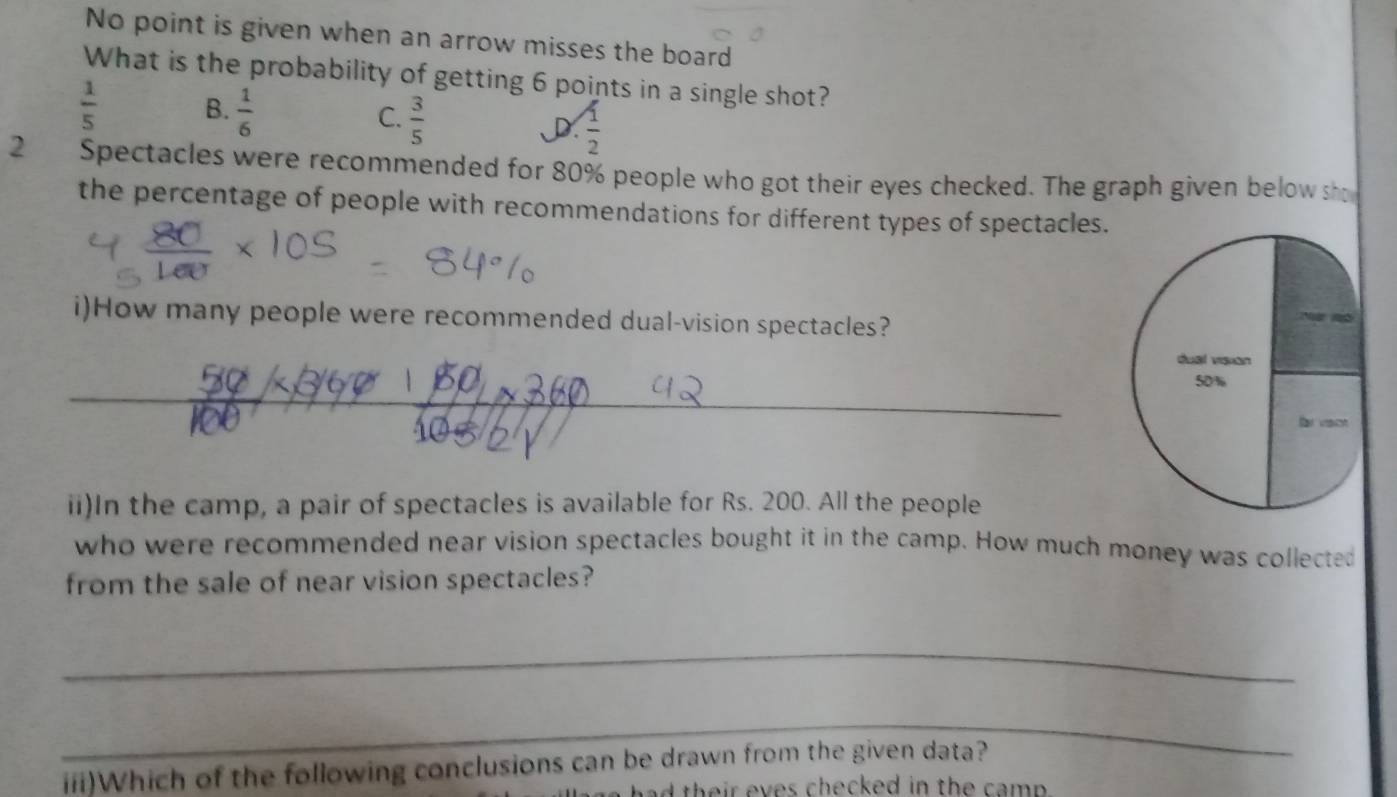 No point is given when an arrow misses the board
What is the probability of getting 6 points in a single shot?
1/5 B. 1/6 C. 3/5 D. 1/2
2 Spectacles were recommended for 80% people who got their eyes checked. The graph given below show
the percentage of people with recommendations for different types of spectacles.
4 80/100 × 105 = 84%
5
i)How many people were recommended dual-vision spectacles?
dual vision
50%
far vision
50/100 50/105 × 360 42
ii)In the camp, a pair of spectacles is available for Rs. 200. All the people
who were recommended near vision spectacles bought it in the camp. How much money was collected
from the sale of near vision spectacles?
iii)Which of the following conclusions can be drawn from the given data?
had their eyes checked in the camp.